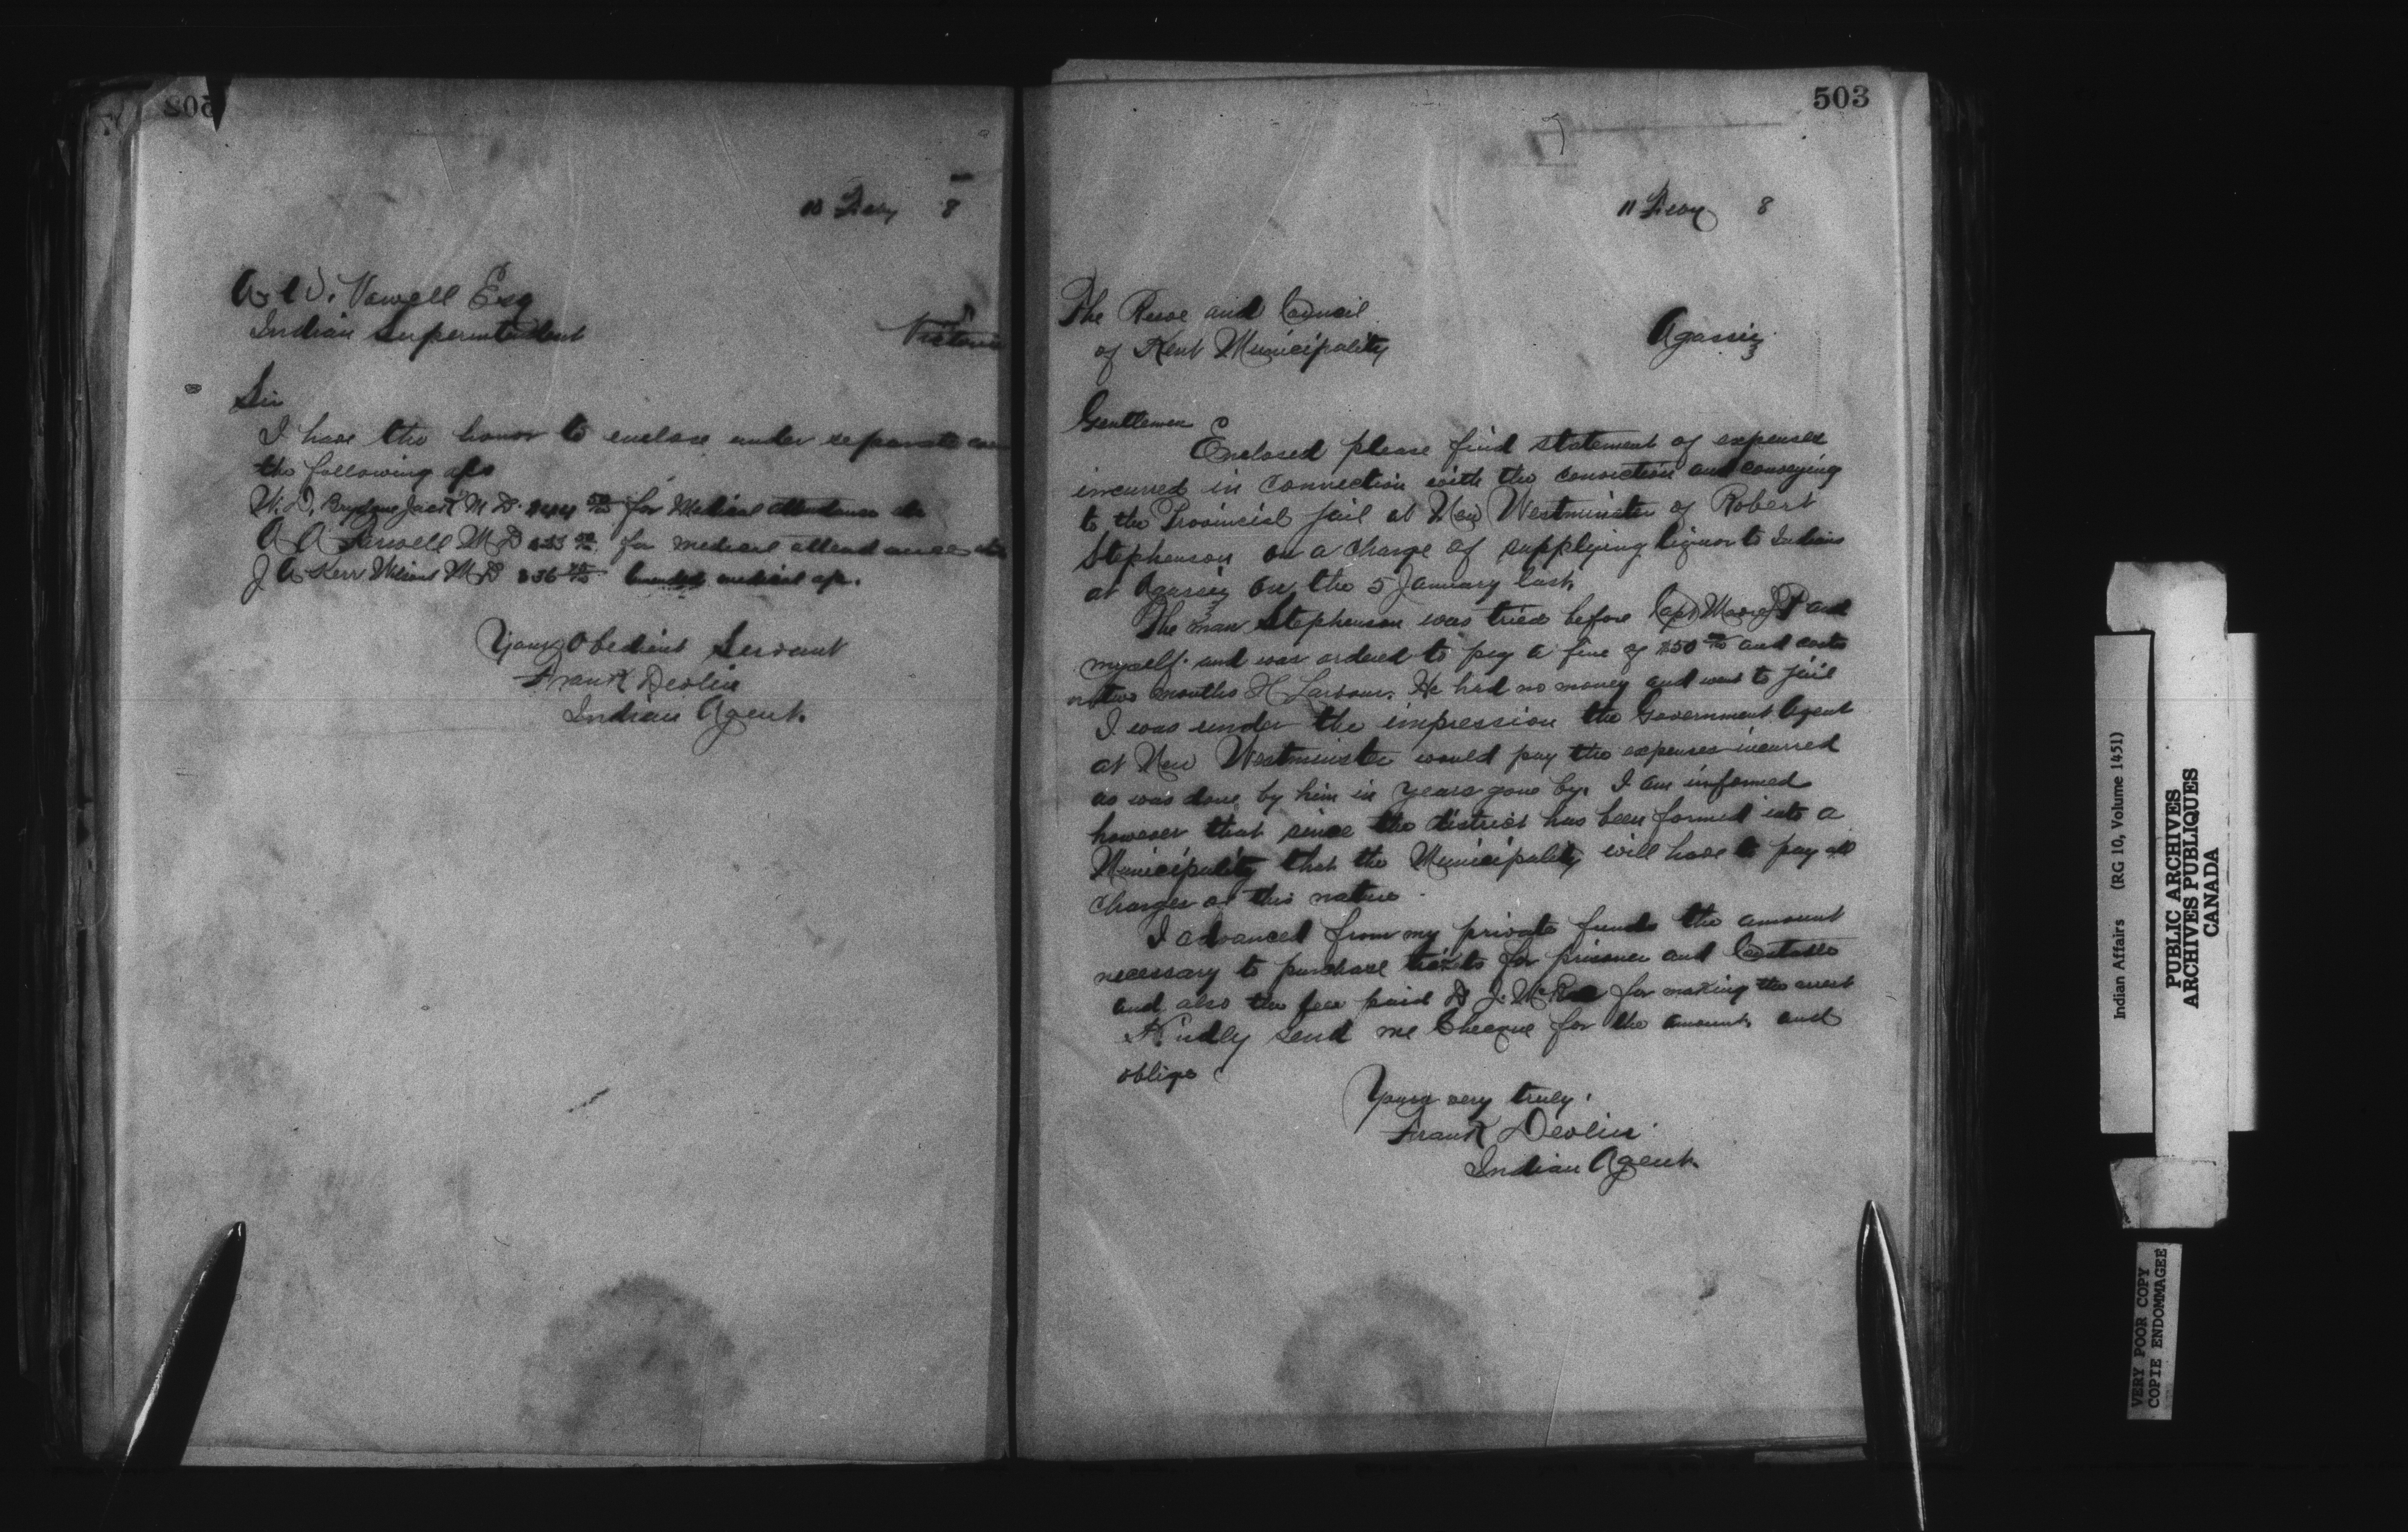 10 Feby 8
A. W. Vowell Esq
Indian Superintendent Victoria
Sir
I have the honor to enclose under separate
the following a/cs
W. D. Brydone Jack M D. for Medical attendance &c
A A Farwell M D for medical attendance
J A Kerr Wilson M D medical a/c.
Your Obedient Servant
Frank Devlin
Indian Agent.
503
11 Feby 8
The Reeve and Council
of Kent Municipality Agassiz
Gentlemen
Enclosed please find statement of expenses
incurred in connection with the conviction and conveying
to the Provincial jail at New Westminster of Robert
Stephenson on a charge of supplying liquor to Indians
at Agassiz on the 5 January last.
The man Stephenson was tried before Capt Moore J P and
myself and was ordered to pay a fine of $50 00/100 and costs
or two months H Labour. He had no money and went to jail
I was under the impression the Government Agent
at New Westminster would pay the expenses incurred
as was done by him in years gone by. I am informed
however that since the district has been formed into a
Municipality that the Municipality will have to pay all
charges of this nature.
I advanced from my private funds the amount
necessary to purchase tickets for prisoner and Constable
and also the fee paid D J. McRae for making the arrest
Kindly send me Cheque for the amount and
oblige
Yours very truly.
Frank Devlin
Indian Agent.
Indian Affairs (RG 10, Volume 1451)
PUBLIC ARCHIVES
ARCHIVES PUBLIQUES
CANADA
VERY POOR COPY
COPIE ENDOMMAGEE